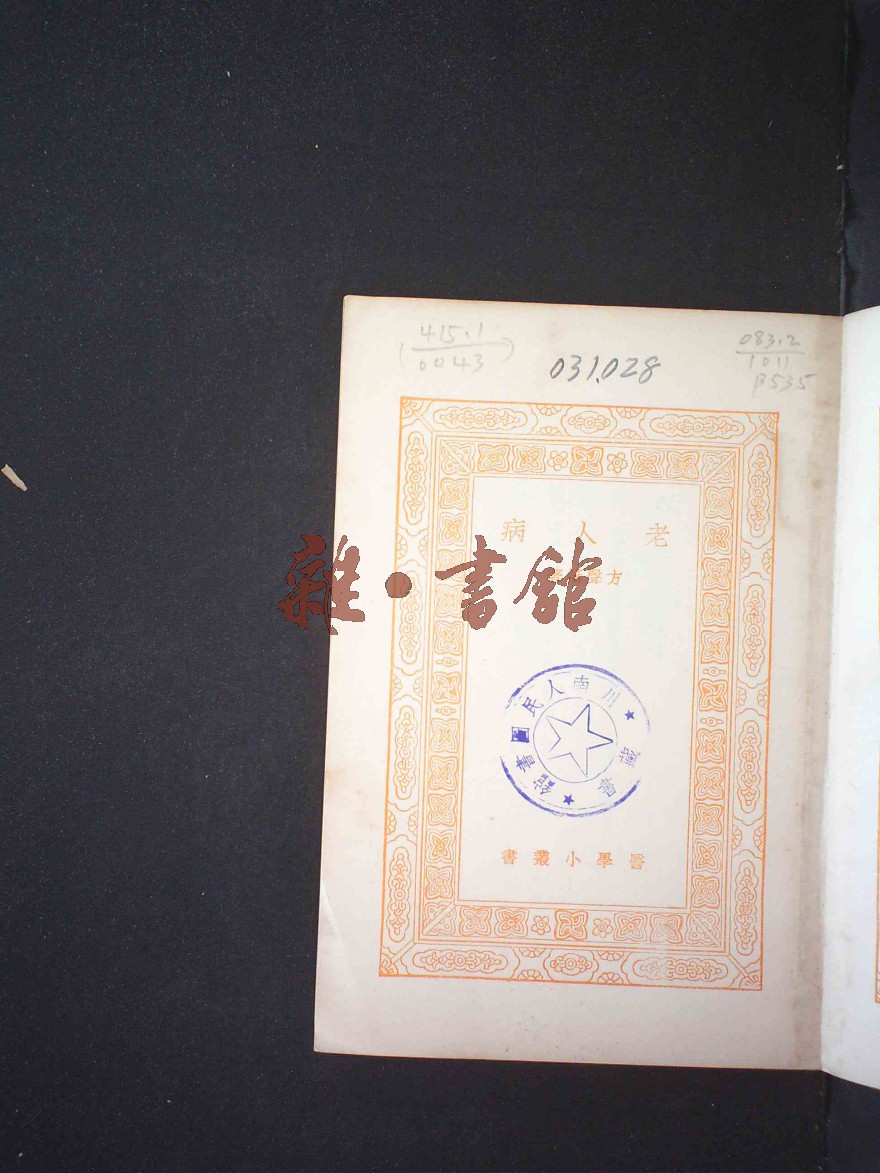 415.1
0043
031.028
083.2
1011
β535
老人病
方
雜·書館
川南人民圖書館
藏書
醫學小叢書